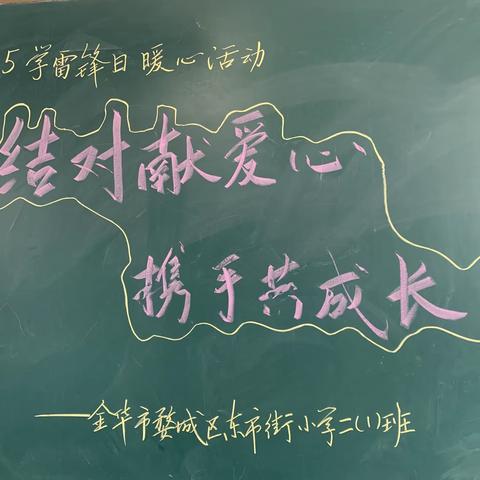 5学雷锋日 暖心活动
结对献爱心
携手共成长
——金华市婺城区东市街小学二(1)班